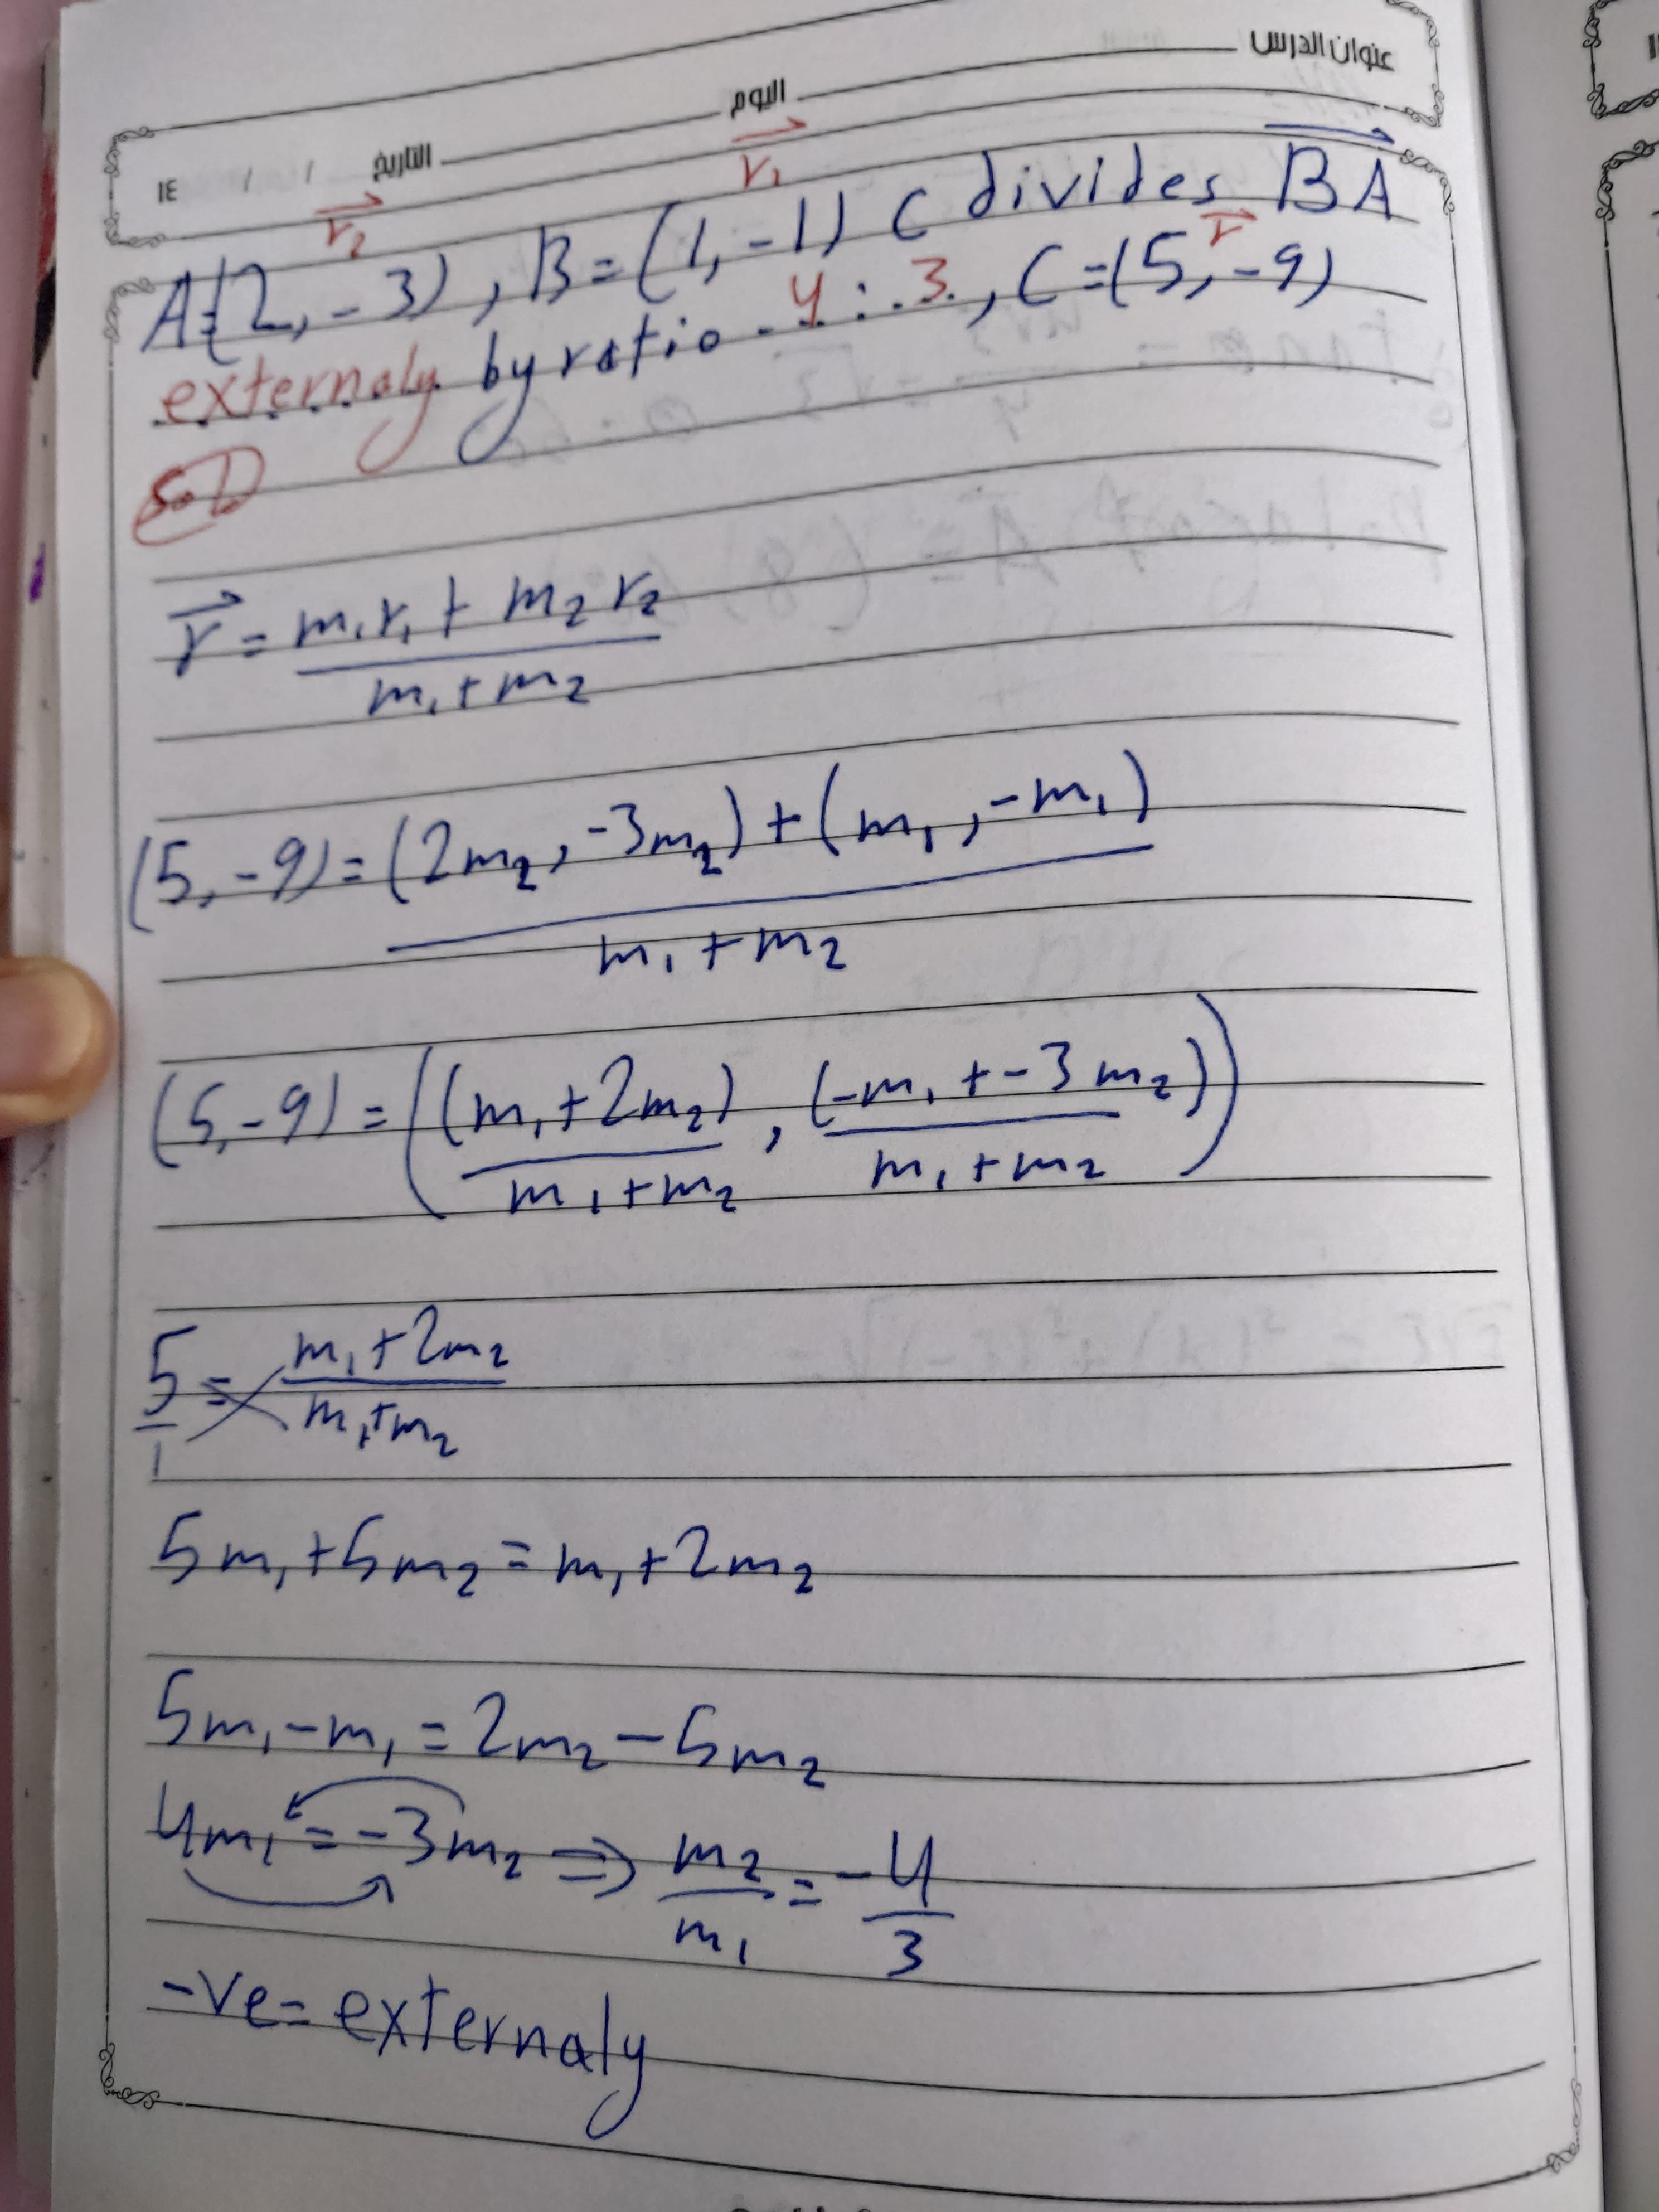 عنوان الدرس
اليوم
التاريخ / / ١٤
A=(2, -3), B=(1, -1) C divides BA
externaly by ratio 4:3, C=(5, -9)
r₂ r₁ r
sol
r = m₁r₁ + m₂r₂ / m₁+m₂
(5, -9) = (2m₂, -3m₂) + (m₁, -m₁) / m₁+m₂
(5, -9) = ((m₁+2m₂) / m₁+m₂ , (-m₁ + -3m₂) / m₁+m₂)
5/1 = m₁+2m₂ / m₁+m₂
5m₁+5m₂ = m₁+2m₂
5m₁-m₁ = 2m₂-5m₂
4m₁ = -3m₂ ⇒ m₂/m₁ = -4/3
-ve = externaly